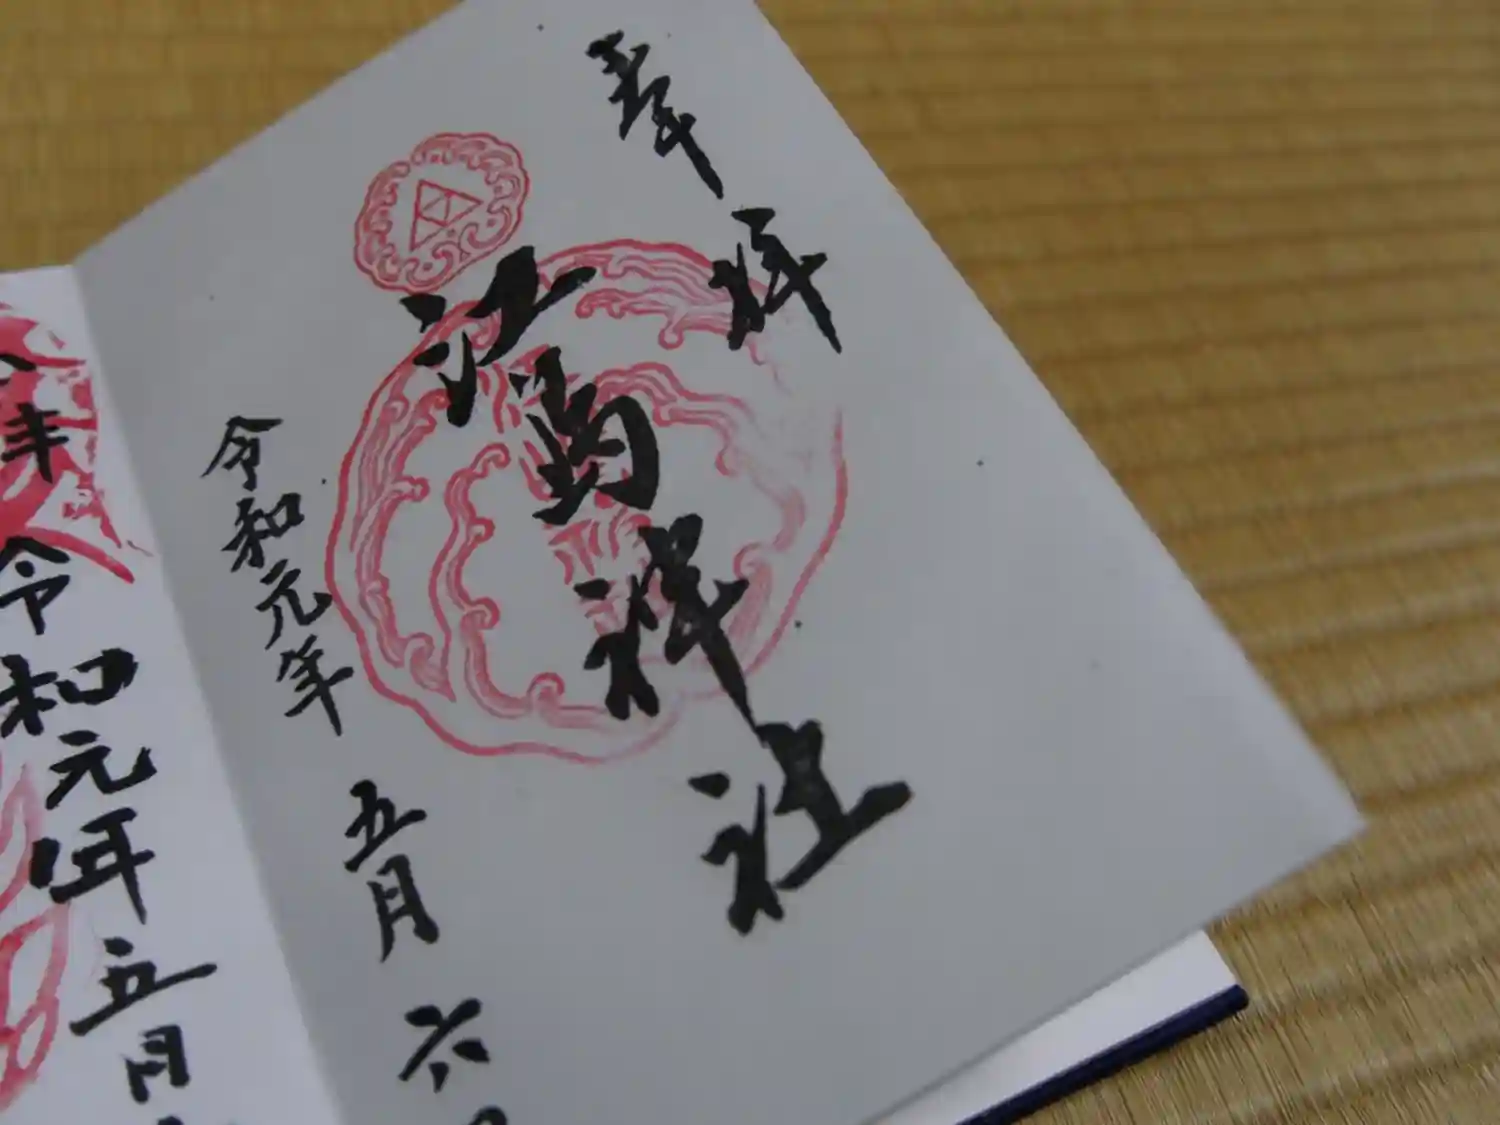 奉拝
江島神社
令和元年 五月 六日
令和元年五月